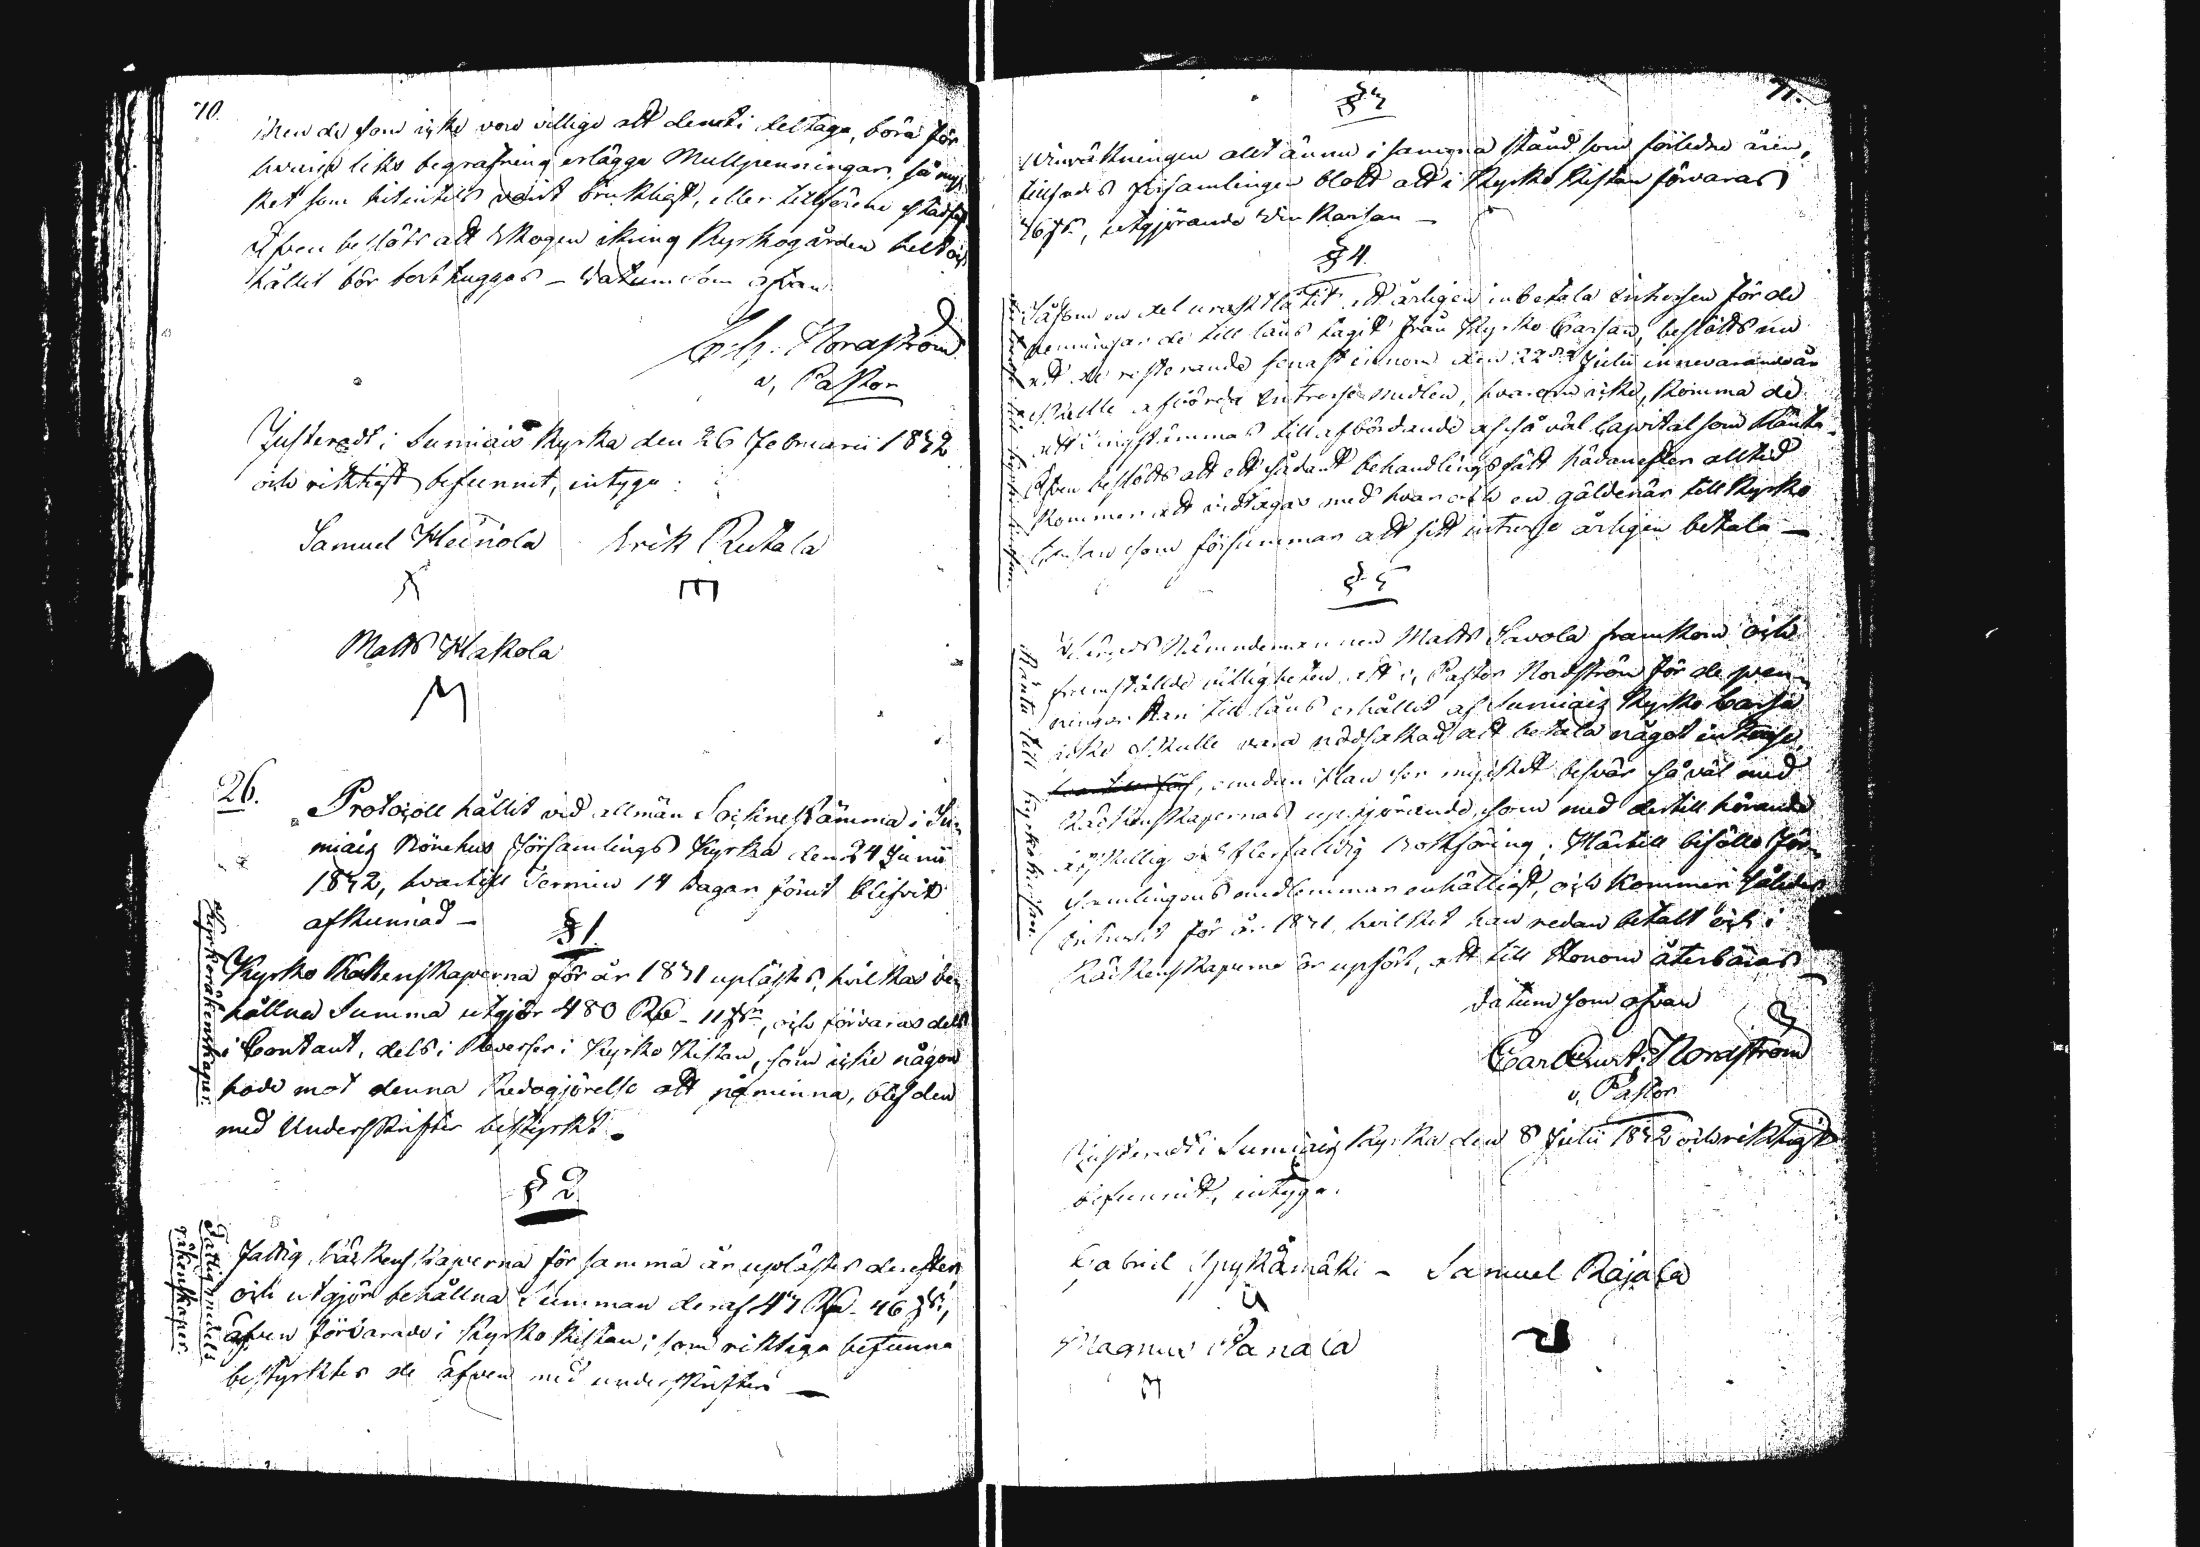 70.
Men de som icke voro villige att deruti deltaga, böra för
hvarje liks begrafning erlägga Mullpenningar, så myc-
ket som hitintils varit brukligt, eller tillförene stadgat
Äfven beslöts att skogen ikring Kyrkogården helt och
hållit bör borthuggas – Datum som ofvan
Nordström
v, Pastor
Justeradt i Sumiais Kyrka den 26 Februarii 1832
och riktigt befunnit, intyga:
Samuel Heinola Erik Rutala
Matts Hakola
26.
Protocoll hållit vid allmän Sockne Stämma i Su-
miais Bönehus Församlings Kyrka den 24 Junii
1832, hvartill Termin 14 dagar förut blifvit
afkunnad –
§ 1.
Kyrkoräkenskaper.
Kyrko Räkenskaperna för år 1831 uplästes, hvilkas be-
hållna Summa utgjör 480 R – 11, och förvaras dels
i Contant, dels i Reverser i Kyrko Kistan, som icke någon
hade mot denna Redogjörelse att påminna, blef den
med Underskrifter bestyrkt.
§ 2
Fattigmedels
räkenskaper.
Fattig Räkenskaperna för samma år uplästes derefter,
och utgjör behållna Summan deraf 47 R – 46,
äfven förvarade i Kyrko Kistan; som riktiga befunna
bestyrktes de äfven med underskrifter –
71.
§ 3
Vinräkningen allt ännu i samma stånd som förledne åren,
tillsades Församlingen blott att i Kyrko Kistan förvaras
76, utgjörande Vin Kassan –
§ 4.
Såsom en del uraktlåtit att årligen inbetala Intressen för de
penningar de till låns tagit från Kyrko Cassan, beslöts nu
att de resterande senast innom den 22 Julii innevarande år
skulle afbörda Intresse medlen, hvarom icke, komma de
att instämmas till afbördande af så väl Capital som Ränta.
Äfven beslöts att ett sådant behandlingssätt hädanefter alltid
kommer att vidtagas med hvar och en gäldenär till Kyrko
Cassan som försummar att sitt intresse årligen betala –
§ 5
Ränta till Kyrkokassan
Härads Nämndemannen Matts Savola framkom och
framställde billigheten att v, Pastor Nordström för de pen-
ningar han till låns erhållit af Sumiais Kyrko Cassa
icke skulle vara nödsakad att betala något intresse,
emedan Han har mycket besvär så väl med
Räkenskapernas uppgjörande, som med dertill hörande
åtskillig och flerfaldig bokföring. Härtill biföllo För-
samlingens medlemmar enhälligt, och kommer således
Intresset för år 1831, hvilket han redan betalt och i
Räkenskaperne är upfört, att till Honom återbäras –
Datum som ofvan
Carl Nordström
v. Pastor
Justeradt i Sumiais Kyrka den 8 Julii 1832 och riktigt
befunnit, intyga.
Gabriel Spykämäki – Samuel Rajala
Magnus Panala